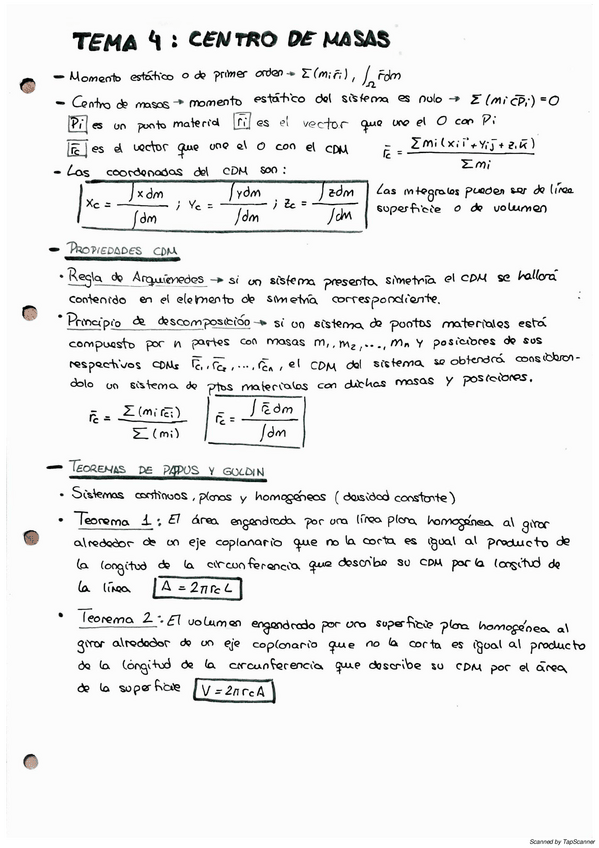 TEMA 4: CENTRO DE MASAS
- Momento estático o de primer orden → Σ(mi r̄i), ∫Ω r̄ dm
- Centro de masas → momento estático del sistema es nulo → Σ(mi c̄P̄i) = 0
Pi es un punto material r̄i es el vector que une el O con Pi
r̄c es el vector que une el O con el CDM r̄c = Σmi(xi i⃗ + yi j̄ + zi k̄) / Σmi
- Las coordenadas del CDM son:
Xc = ∫x dm / ∫dm ; Yc = ∫y dm / ∫dm ; Zc = ∫z dm / ∫dm
Las integrales pueden ser de línea
superficie o de volumen
- PROPIEDADES CDM
• Regla de Arquímedes → si un sistema presenta simetría el CDM se hallará
contenido en el elemento de simetría correspondiente.
• Principio de descomposición → si un sistema de puntos materiales está
compuesto por n partes con masas m1, m2, ..., mn y posiciones de sus
respectivos CDMs r̄c1, r̄c2, ..., r̄cn, el CDM del sistema se obtendrá considerán-
dolo un sistema de ptos materiales con dichas masas y posiciones.
r̄c = Σ(mi r̄ci) / Σ(mi) r̄c = ∫r̄c dm / ∫dm
- TEOREMAS DE PAPUS Y GULDIN
• Sistemas continuos, planos y homogéneos (densidad constante)
• Teorema 1: El área engendrada por una línea plana homogénea al girar
alrededor de un eje coplanario que no la corta es igual al producto de
la longitud de la circunferencia que describe su CDM por la longitud de
la línea A = 2πrcL
• Teorema 2: El volumen engendrado por una superficie plana homogénea al
girar alrededor de un eje coplanario que no la corta es igual al producto
de la lóngitud de la circunferencia que describe su CDM por el área
de la superficie V = 2πrcA
Scanned by TapScanner